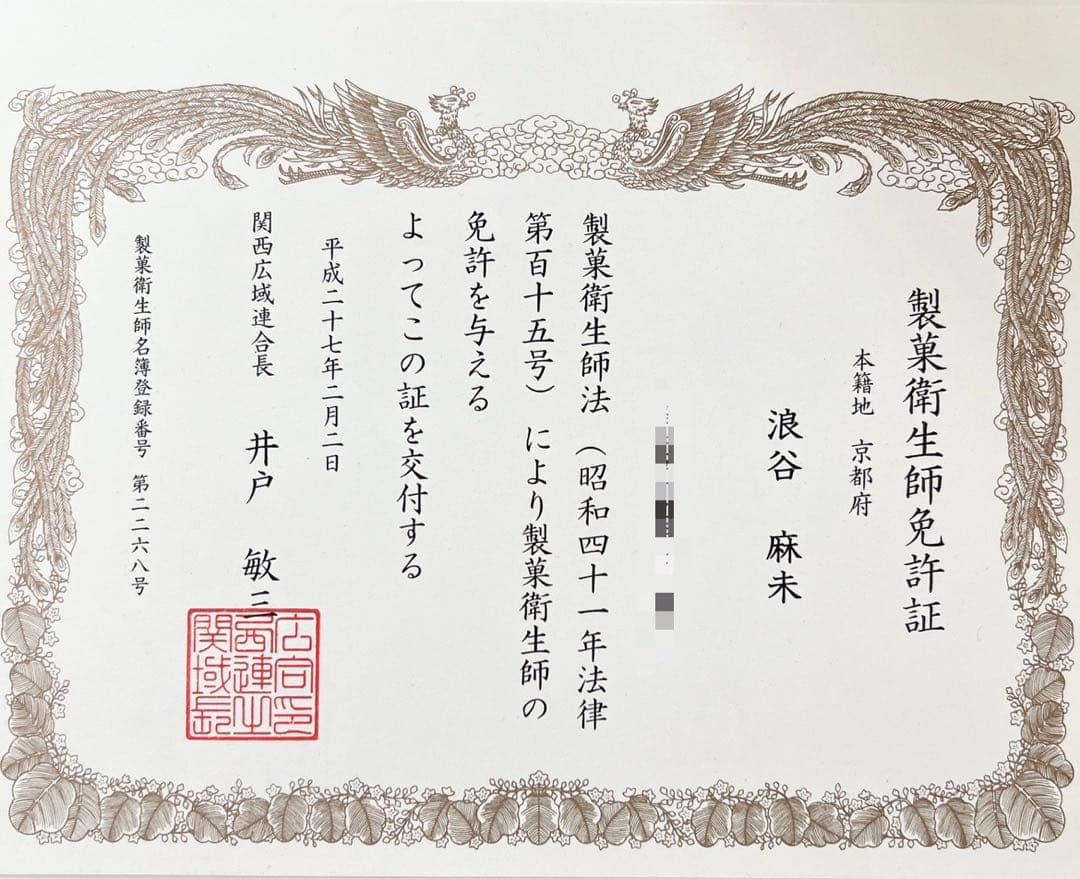 製菓衛生師免許証
本籍地 京都府
浪谷 麻未
製菓衛生師法(昭和四十一年法律
第百十五号)により製菓衛生師の
免許を与える
よってこの証を交付する
平成二十七年二月二日
関西広域連合長 井戸 敏三
製菓衛生師名簿登録番号 第二二六八号